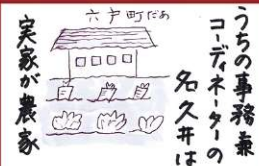 うちの事務兼
コーディネーターの
名久井は
六戸町だあ
実家が農家